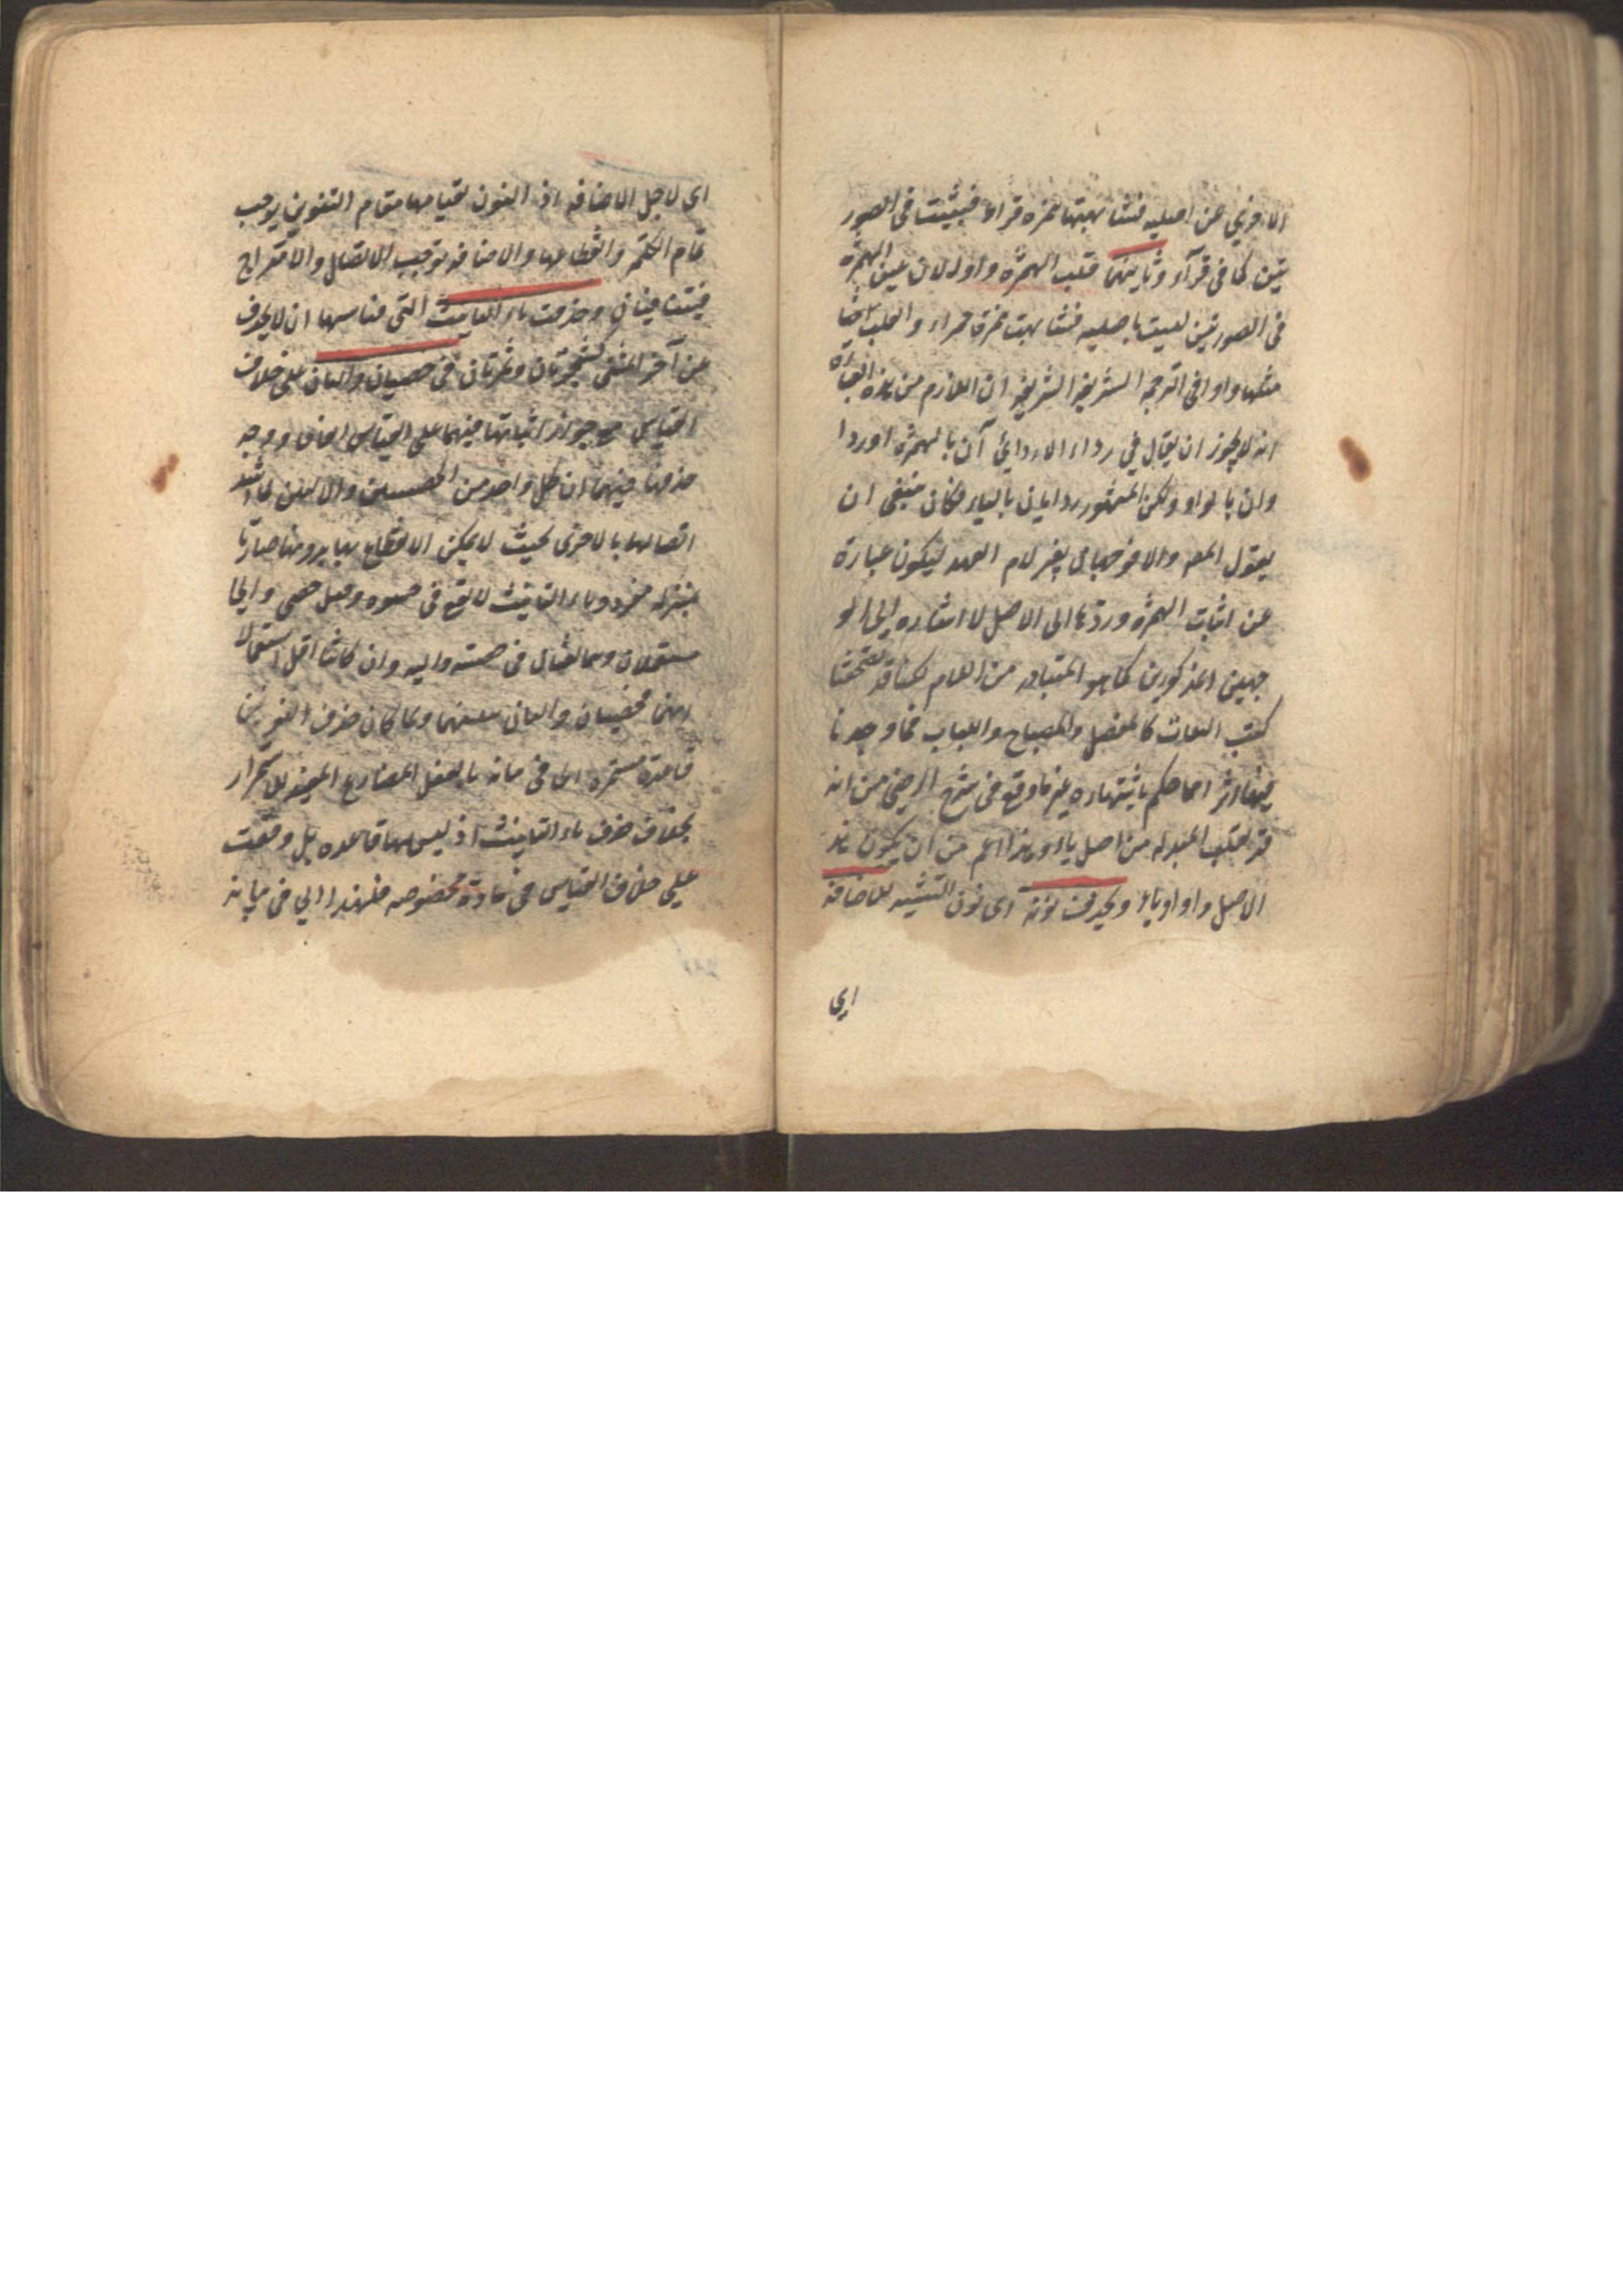 الاخرى عن اصليه فشابهتها همزه قراء فيثبت فى الصور
تين كما فى قرآء وثانيهما قلب الهمزة واوا لان عين الهمزة
فى الصورتين ليست باصليه فشابهت همزة حمراء والقلب ايضا
مثلها واوا فى الترجمة الشريفة الشريفية ان اللازم من هذه العبارة
انه لا يجوز ان يقال فى رداء الا ردائى آن بالهمزة او ردا
وان بالواو ولكن المشهور ردايان بالياء فكان ينبغى ان
يقول المص والا فوجهان بغير لام العهد ليكون عبارة
عن اثبات الهمزة وردها الى الاصل لا اشارة الى الو
جهين المذكورين كما هو المتبادر من اللام لكنا قد تصفحنا
كتب الثقات كالمفصل والمصباح واللباب فما وجدنا
فيها اثر احما حكم باشتهاره غير ما وقع فى شرح الرضى من انه
قد تقلب المبدلة من اصل ياء وهذا اعم من ان يكون هذ
الاصل واوا او ياء ويحذف نونه اى نون التثنيه للاضافة
اى
اى لاجل الاضافة اذ النون لقيامها مقام التنوين يوجب
تمام الكلمة وانقطاعها والاضافة توجب الاتصال والامتزاج
فيتنافيان وحذفت تاء التانيث التى قياسها ان لا يحذف
عن آخر المثنى كشجرتان وثمرتان فى خصيان واليان على خلاف
القياس مع جواز اثباتها فيهما على القياس اتفاقا ووجه
حذفها فيهما ان كل واحد من الخصيتين والاليتين لما اشتد
اتصالها بالاخرى بحيث لا يمكن الانتفاع بها بدونها صارتا
بمنزلة مفرد وتاء التانيث لا تقع فى حشوه وقيل خصى والى
مستعملان وهما لغتان فى خصية والية وان كانتا اقل استعمالا
منهما فخصيان واليان تثنيتهما ولما كان حذف النون
قاعدة مستمرة اتى فى بيانه بالفعل المضارع المفيد للاستمرار
بخلاف حذف تاء التانيث اذ ليس لها قاعده بل وقعت
على خلاف القياس فى مادة مخصوصه فلهذا اتى فى بيانه